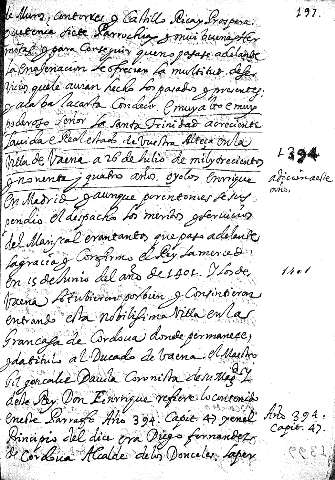 197.
de Muros, contornos y Castillo Rica y Prospera
que tenia siete Parrochias y mui buenas
y para Conseguir que no pasase adelante
la Enagenacion se ofrecian la multitud de ser
vicios que le auian hecho los pasados y presentes
y alaba la carta Con decir = muy alto e muy
poderoso señor la santa Trinidad acreciente
la vida e Real estado de vuestra Alteza en la
Villa de Vaena a 26 de Julio de mil y trecientos
y nouenta y quatro años, oyolos Enrrique
en Madrid y aunque por entonces se sus
pendio el despacho los meritos y seruicios
del Mariscal eran tantos que paso adelante
la gracia y Confirmo el Rey la merced
en 15 de Junio del año de 1401. Y los de
Vaena lo tubieron por bien y Consintieron
entrando esta nobilissima Villa en la
Gran casa de Cordoua donde permanese,
y da titulo al Ducado de Vaena. el Maestro
Gil gonzalez Dauila Coronista de su Magd.
deste Rey Don Enrrique refiere lo contenido
en este Parrafo Año 394. Capit. 47. y en el
Principio del dice era Diego fernandez
de Cordoua Alcalde de los Donceles,
1394
adicion a este
año.
1401
Año 394.
Capit. 47.